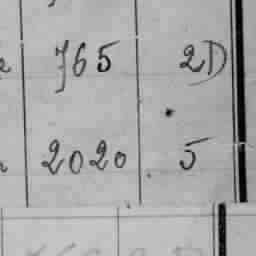 765 2D
2020 5